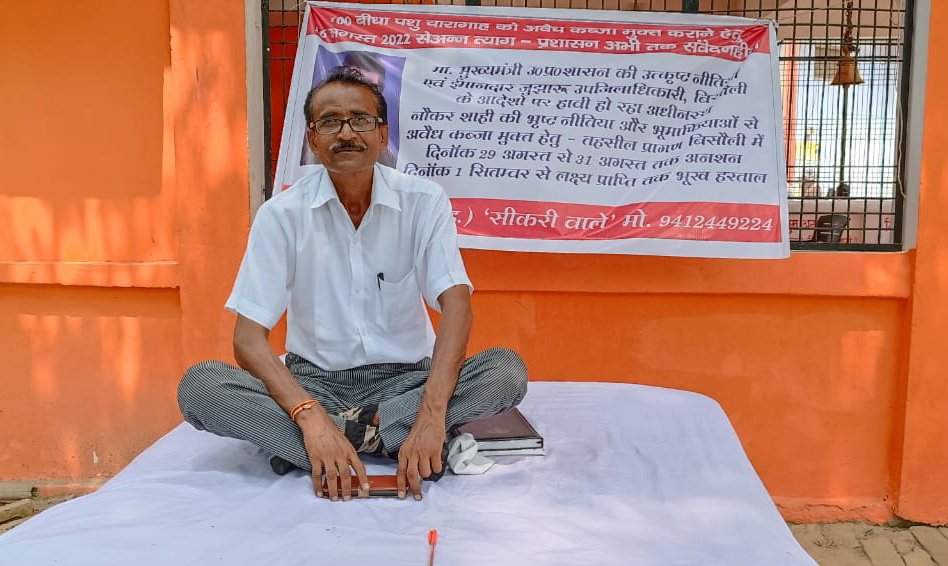 100 बीघा पशु चारागाह को अवैध कब्जा मुक्त कराने हेतु
अगस्त 2022 सेअन्न त्याग – प्रशासन अभी तक संवेदनहीन
मा. मुख्यमंत्री उ०प्र०शासन की उत्कृष्ट नीतियों
एवं ईमानदार जुझारू उपजिलाधिकारी, बिसौली
के आदेशो पर हावी हो रहा अधीनस्थ
नौकर शाही की भृष्ट नीतिया और भूमाफियाओं से
अवैध कब्जा मुक्त हेतु – तहसील प्रागण बिसौली में
दिनॉक 29 अगस्त से 31 अगस्त तक अनशन
दिनॉक 1 सितम्वर से लक्ष्य प्राप्ति तक भूख हरताल
'सीकरी वाले' मो. 9412449224